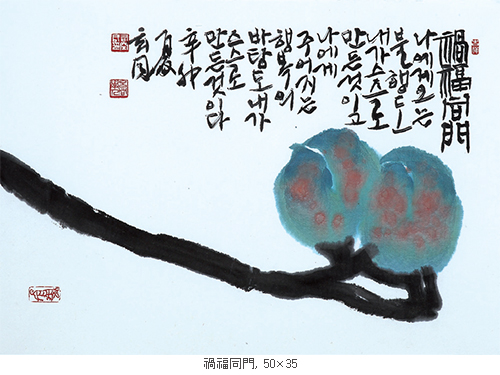 禍福同門
나에게오는
불행도
내가스스로
만든것이고
나에게
주어지는
행복의
바탕도내가
스스로
만든것이다
辛卯
夏
禍福同門, 50×35